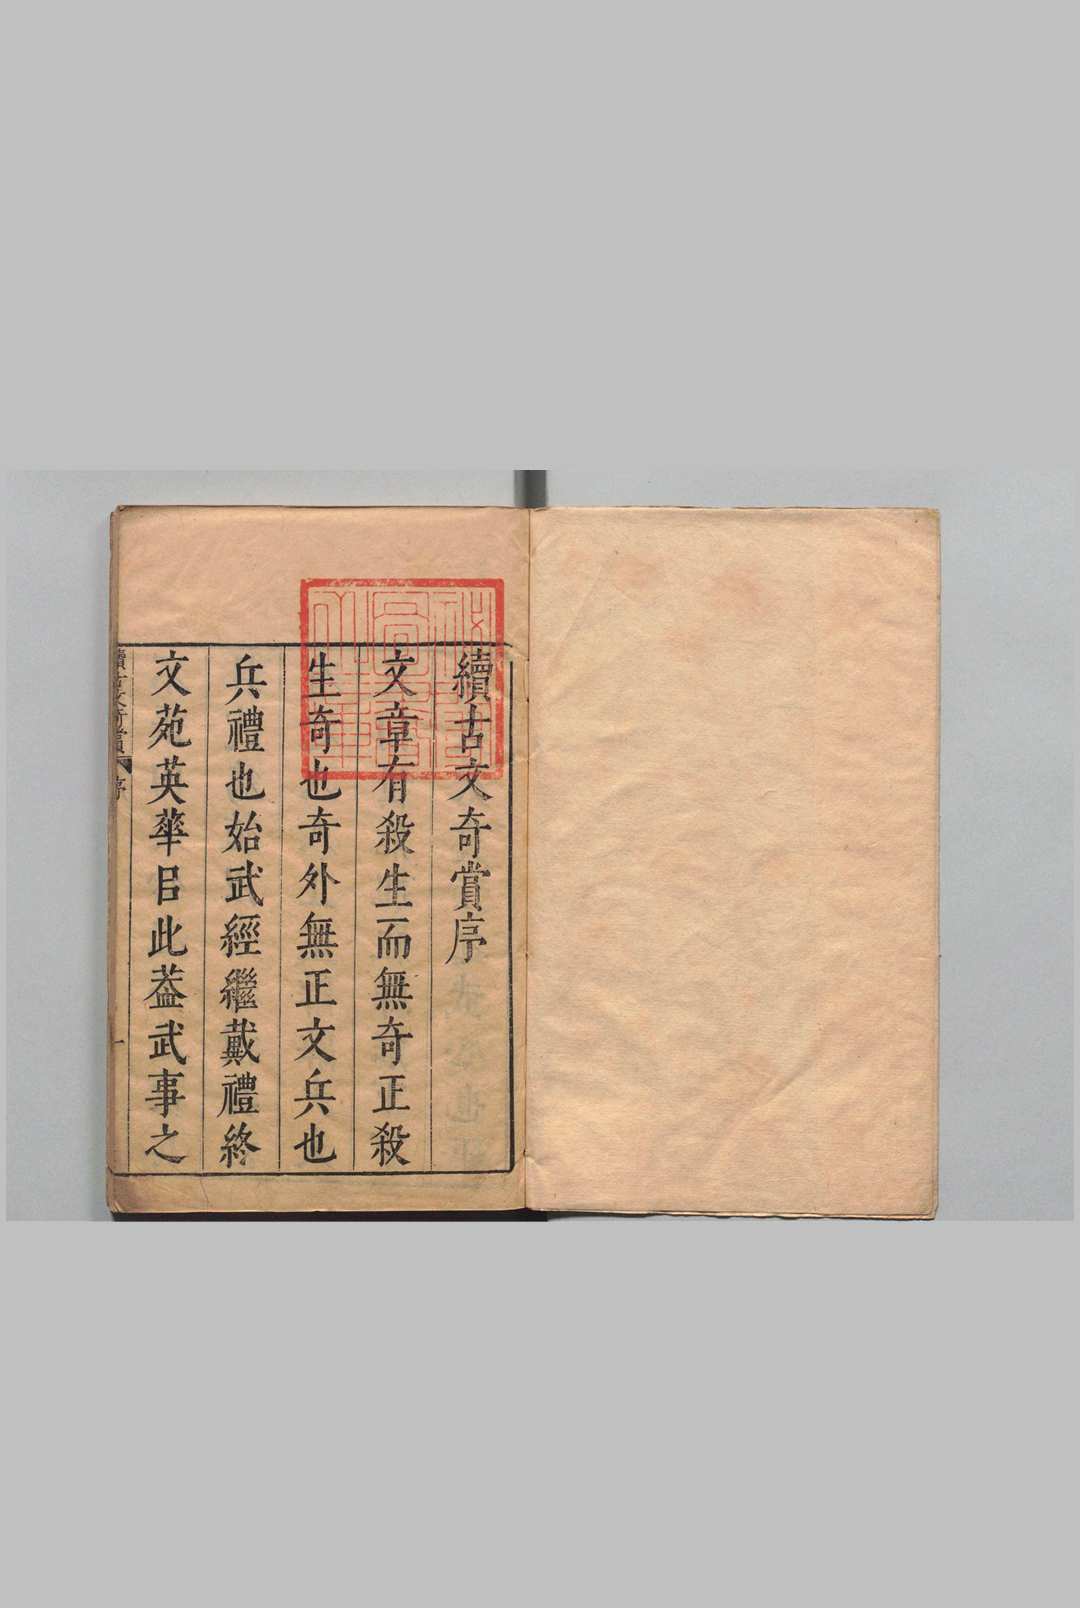 續古文奇賞序
文章有殺生而無奇正殺
生奇也奇外無正文兵也
兵禮也始武經繼戴禮終
文苑英華㠯此葢武事之
續古文奇賞
序
一